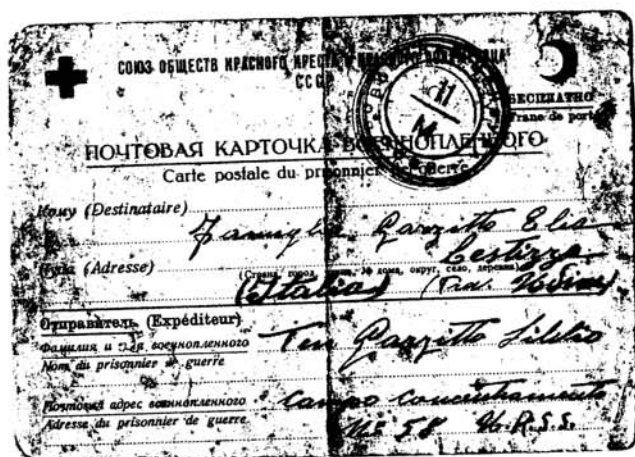 СОЮЗ ОБЩЕСТВ КРАСНОГО КРЕСТА И
СССР
БЕСПЛАТНО
Franc de port
11
ПОЧТОВАЯ КАРТОЧКА ВОЕННОПЛЕННОГО
Carte postale du prisonnier de guerre
Кому (Destinataire)
Famiglia Garzitto Elio
Куда (Adresse) Lestizza
(Страна, город, улица, № дома, округ, село, деревня)
(Italia) (Prov. Udine)
Отправитель (Expéditeur)
Фамилия и имя военнопленного
Nom du prisonnier de guerre
Ten Garzitto
Почтовый адрес военнопленного
Adresse du prisonnier de guerre
campo concentramento
N° 58 U.R.S.S.